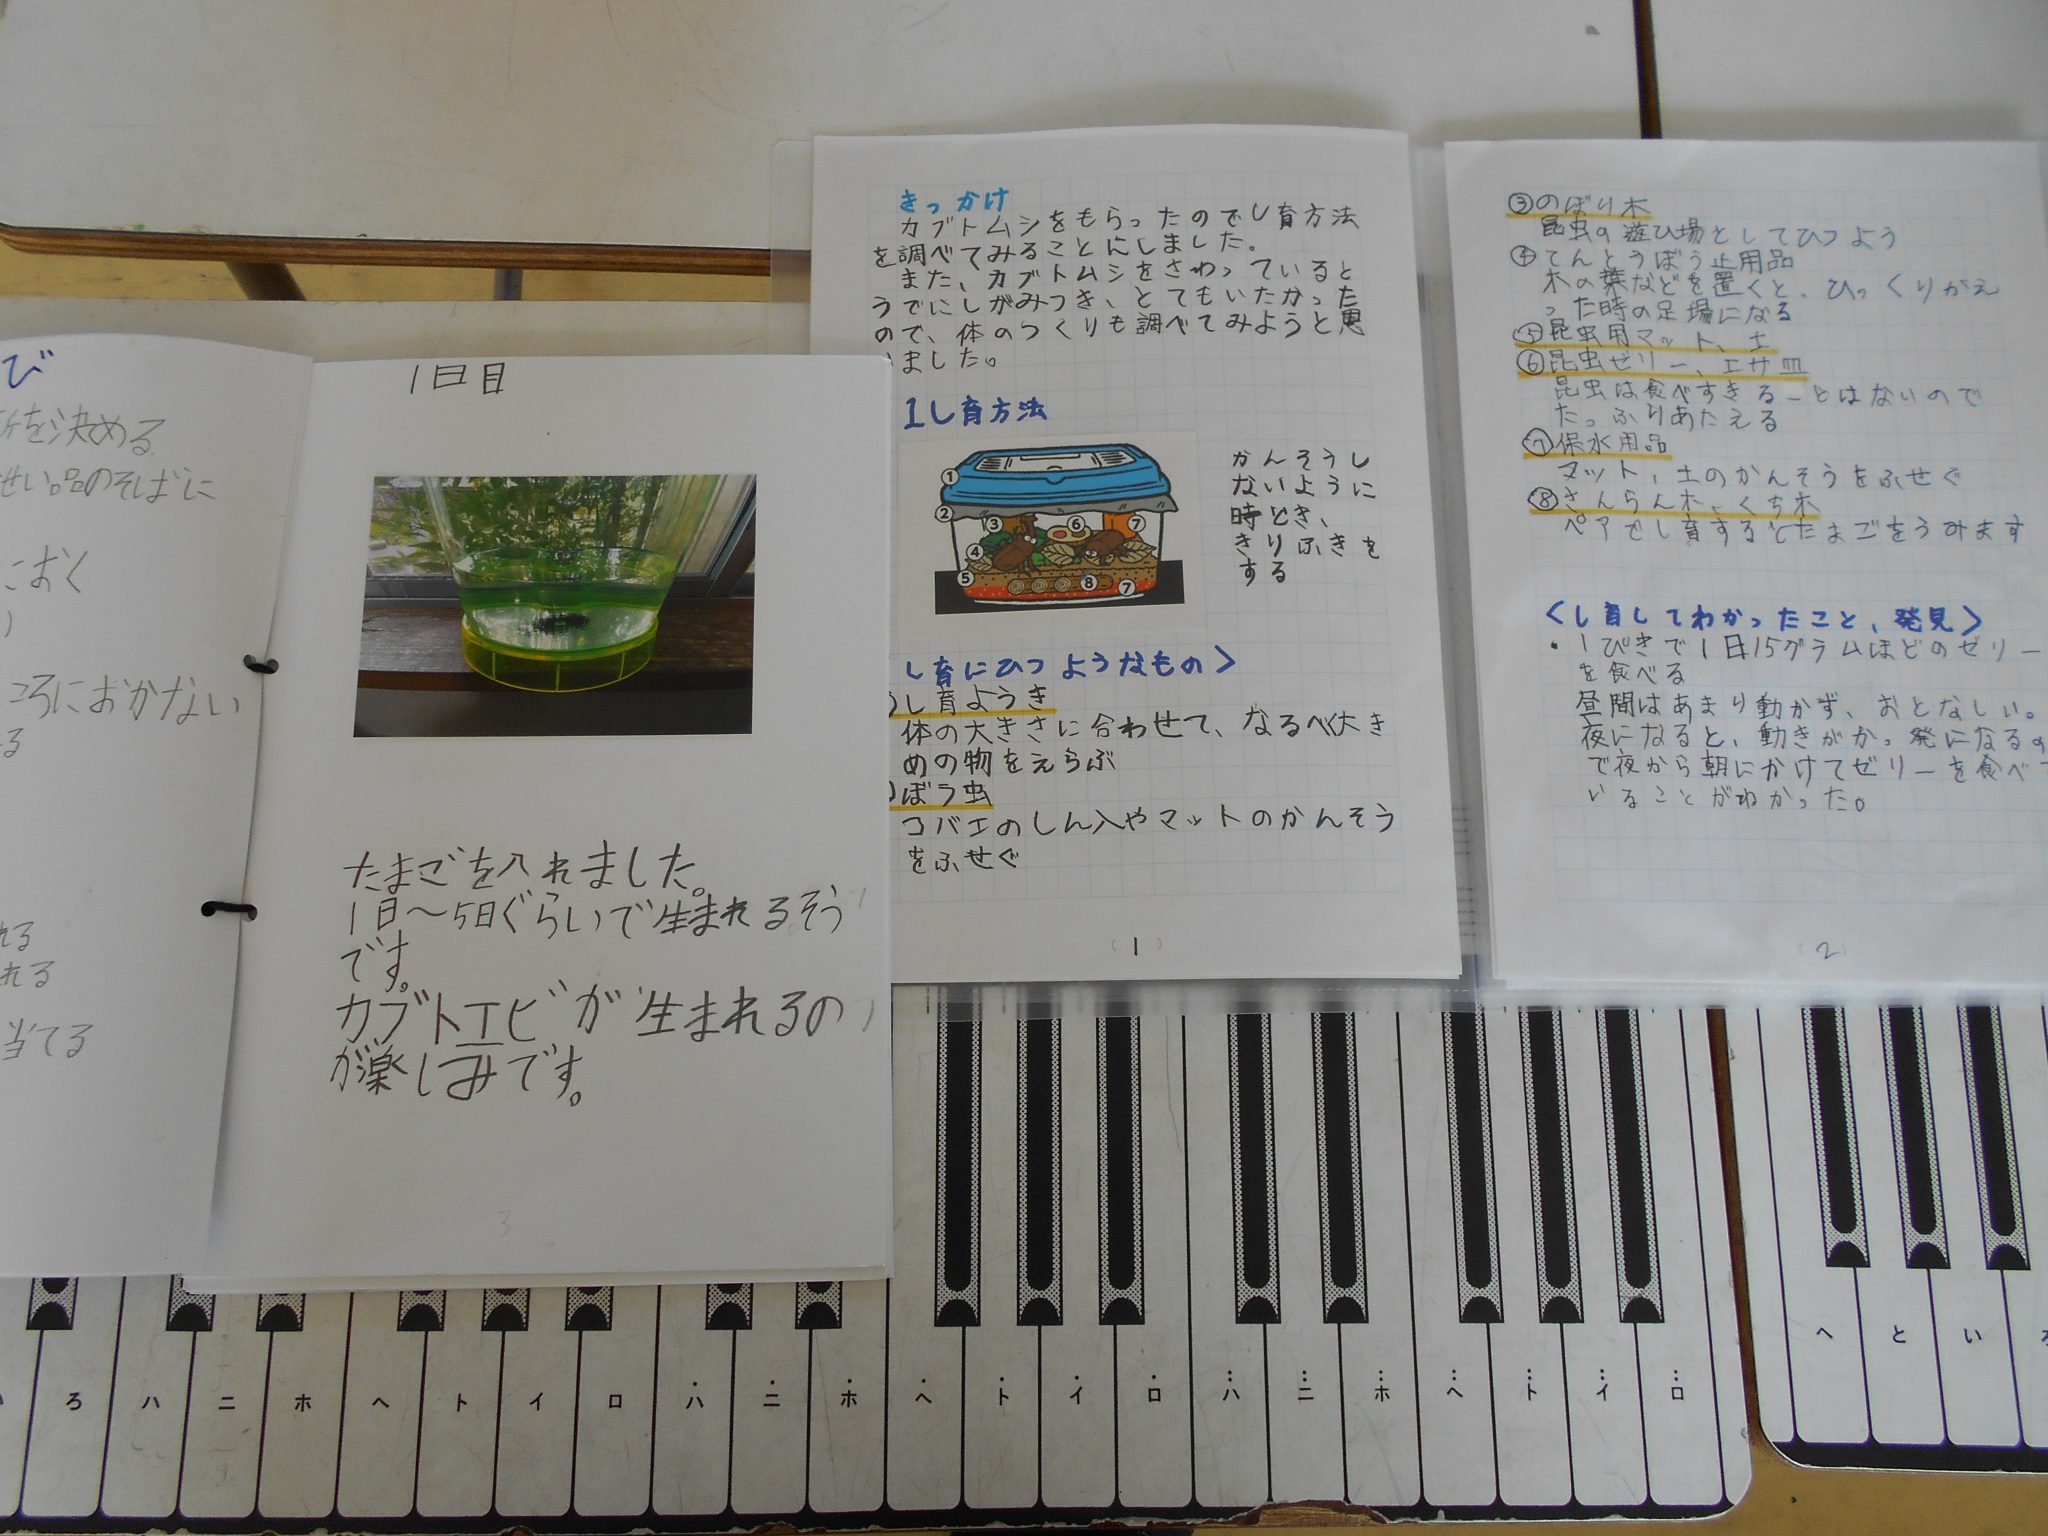 び
を決める
品のそばに
におく
ころにおかない
る
れる
れる
当てる
1日目
たまごを入れました。
1日～5日ぐらいで生まれるそう
です。
カブトエビが生まれるの
が楽しみです。
3
きっかけ
カブトムシをもらったのでし育方法
を調べてみることにしました。
また、カブトムシをさわっていると
うでにしがみつき、とてもいたかった
ので、体のつくりも調べてみようと思
いました。
1し育方法
① ② ③ ④ ⑤ ⑥ ⑦ ⑧ ⑦
かんそうし
ないように
時どき、
きりふきを
する
し育にひつようなもの>
し育ようき
体の大きさに合わせて、なるべく大き
めの物をえらぶ
ぼう虫
コバエのしん入やマットのかんそう
をふせぐ
(1)
③のぼり木
昆虫の遊び場としてひつよう
④てんとうぼう止用品
木の葉などを置くと、ひっくりかえ
った時の足場になる
⑤昆虫用マット、土
⑥昆虫ゼリー、エサ皿
昆虫は食べすきることはないので
たっふりあたえる
⑦保水用品
マット、土のかんそうをふせぐ
⑧さんらん木、くち木
ペアでし育するとたまごをうみます
<し育してわかったこと、発見>
・1ぴきで1日15グラムほどのゼリー
を食べる
昼間はあまり動かず、おとなしい。
夜になると、動きがかっ発になるの
で夜から朝にかけてゼリーを食べて
いることがわかった。
(2)
ろ ハ ニ ホ ヘ ト イ ロ ハ ニ ホ ヘ ト イ ロ ハ ニ ホ ヘ ト イ ロ
へ と い